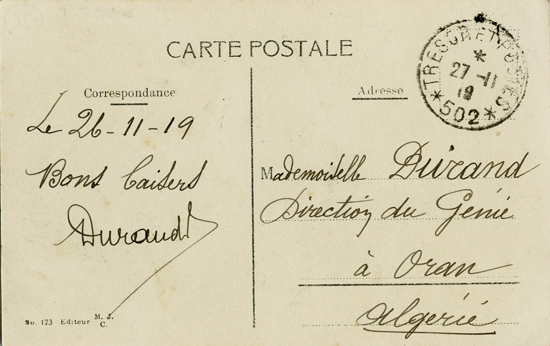 CARTE POSTALE
Correspondance
Le 26-11-19
Bons baisers
Durand
No. 173 Editeur M. J. C.
Adresse
TRESOR ET POSTES
*
27 -11
19
* 502 *
Mademoiselle Durand
Direction du Génie
à Oran
Algérie